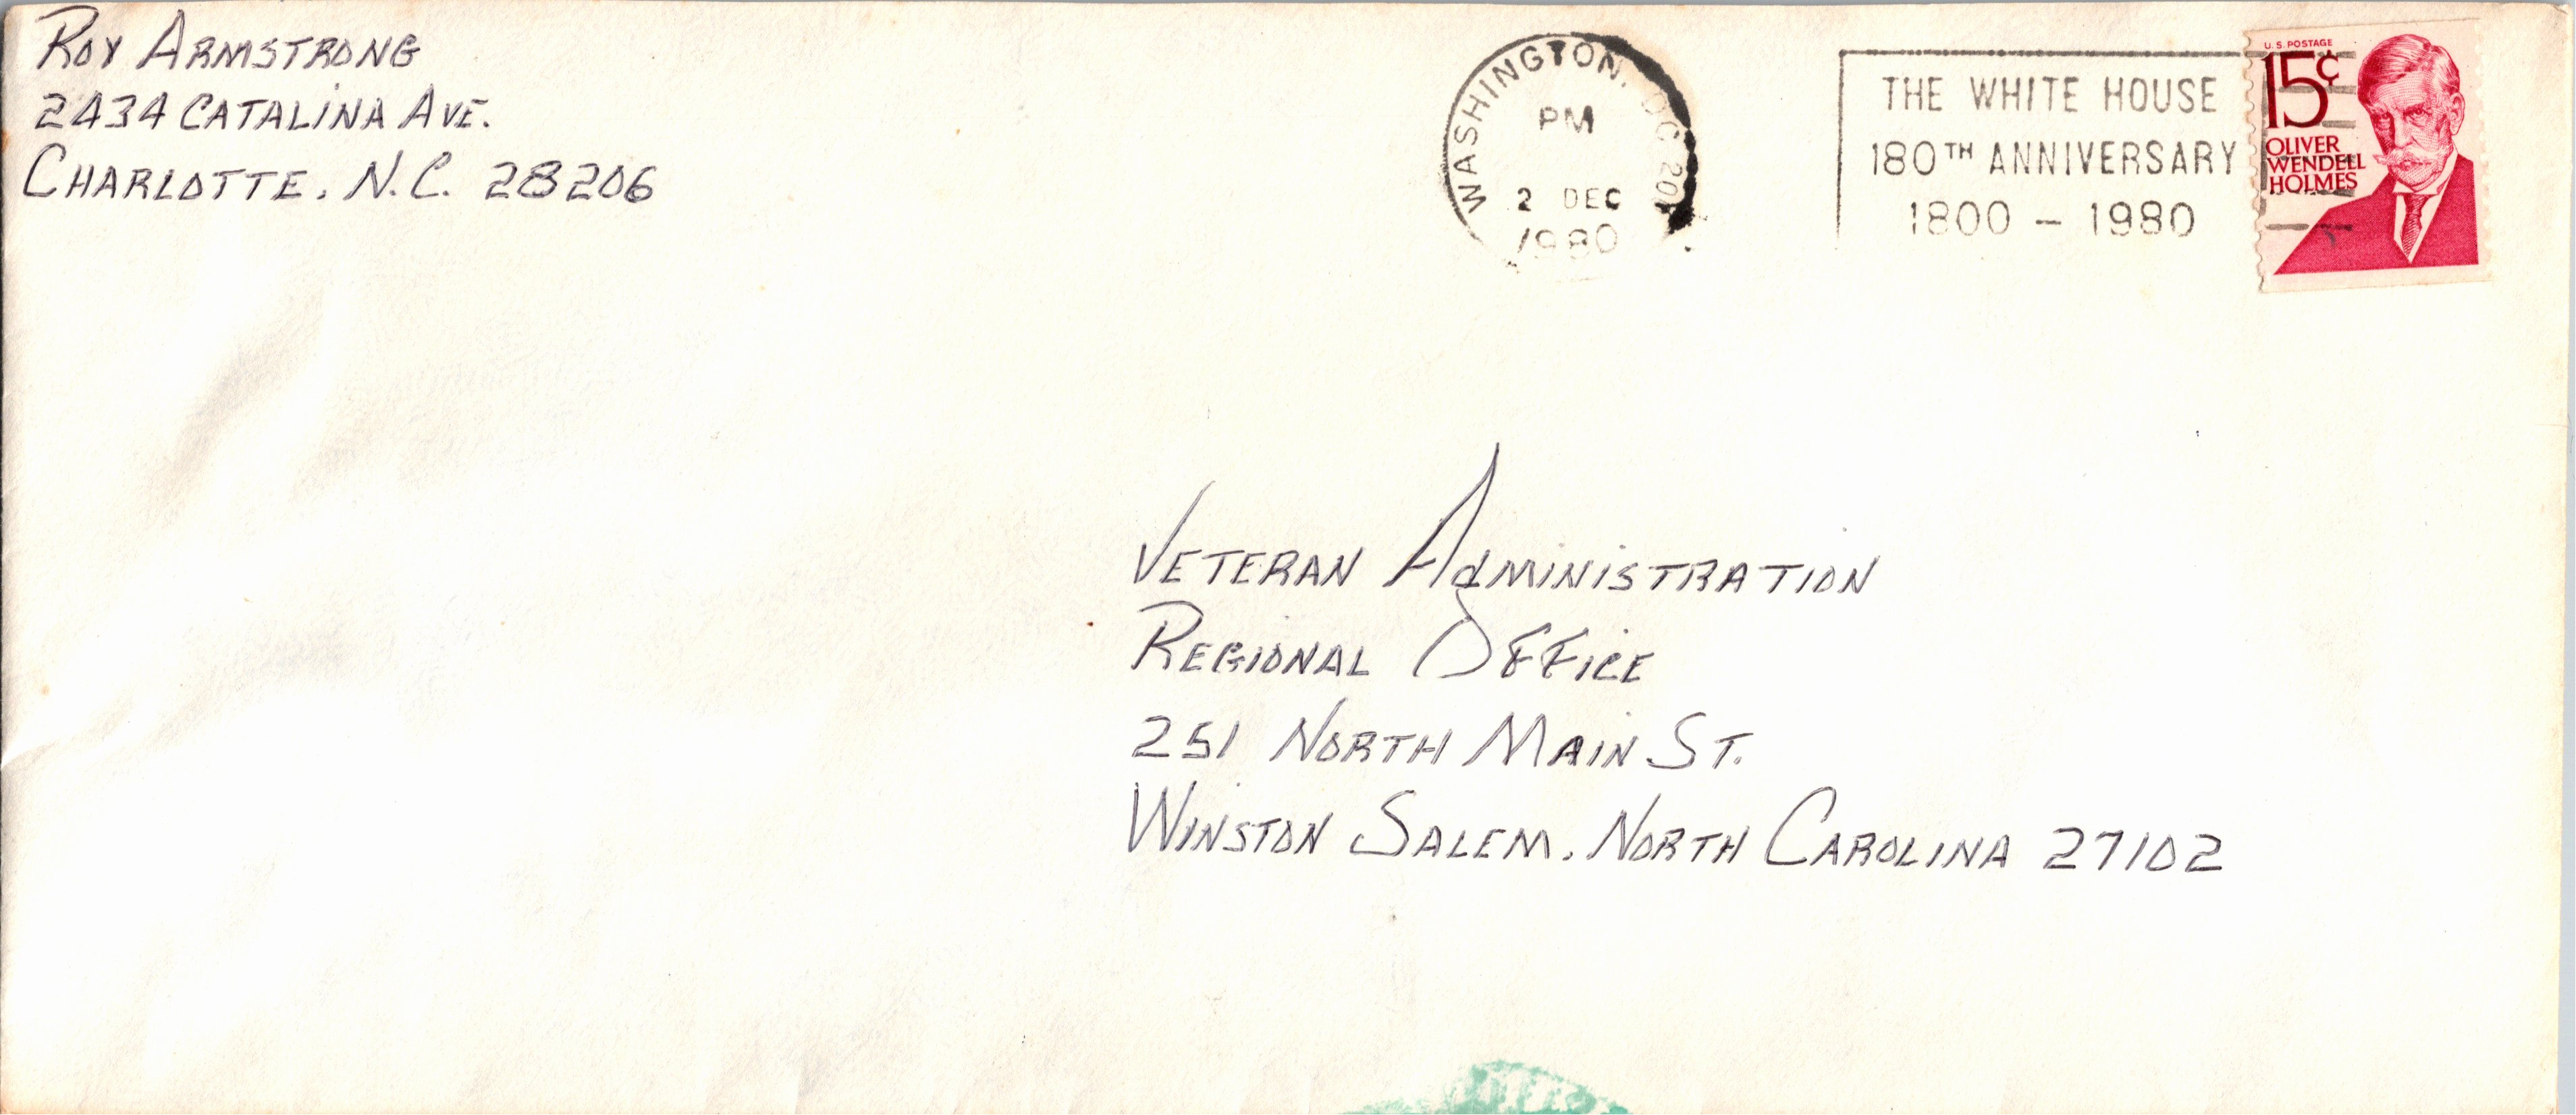 ROY ARMSTRONG
2434 CATALINA AVE.
CHARLOTTE, N.C. 28206
WASHINGTON, DC
PM
2 DEC
1980
THE WHITE HOUSE
180TH ANNIVERSARY
1800 - 1980
U.S. POSTAGE
15¢
OLIVER
WENDELL
HOLMES
VETERAN ADMINISTRATION
REGIONAL OFFICE
251 NORTH MAIN ST.
WINSTON SALEM, NORTH CAROLINA 27102